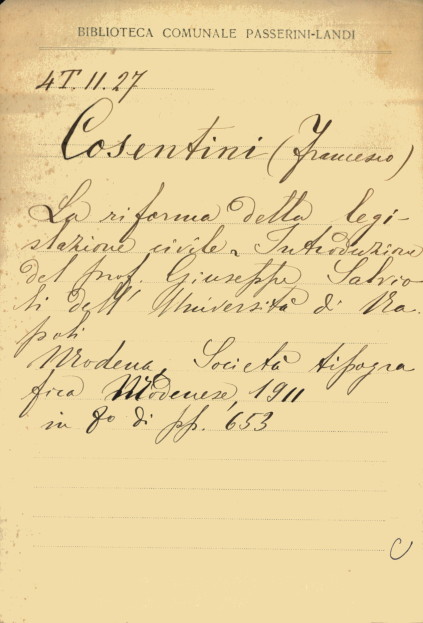 BIBLIOTECA COMUNALE PASSERINI-LANDI
4T.11.27
Cosentini (Francesco)
La riforma della legi-
slazione civile. Introduzione
del prof. Giuseppe Salvio
li dell' Università di Na-
poli
Modena, Società tipogra
fica Modenese, 1911
in 8º di pp. 653
C